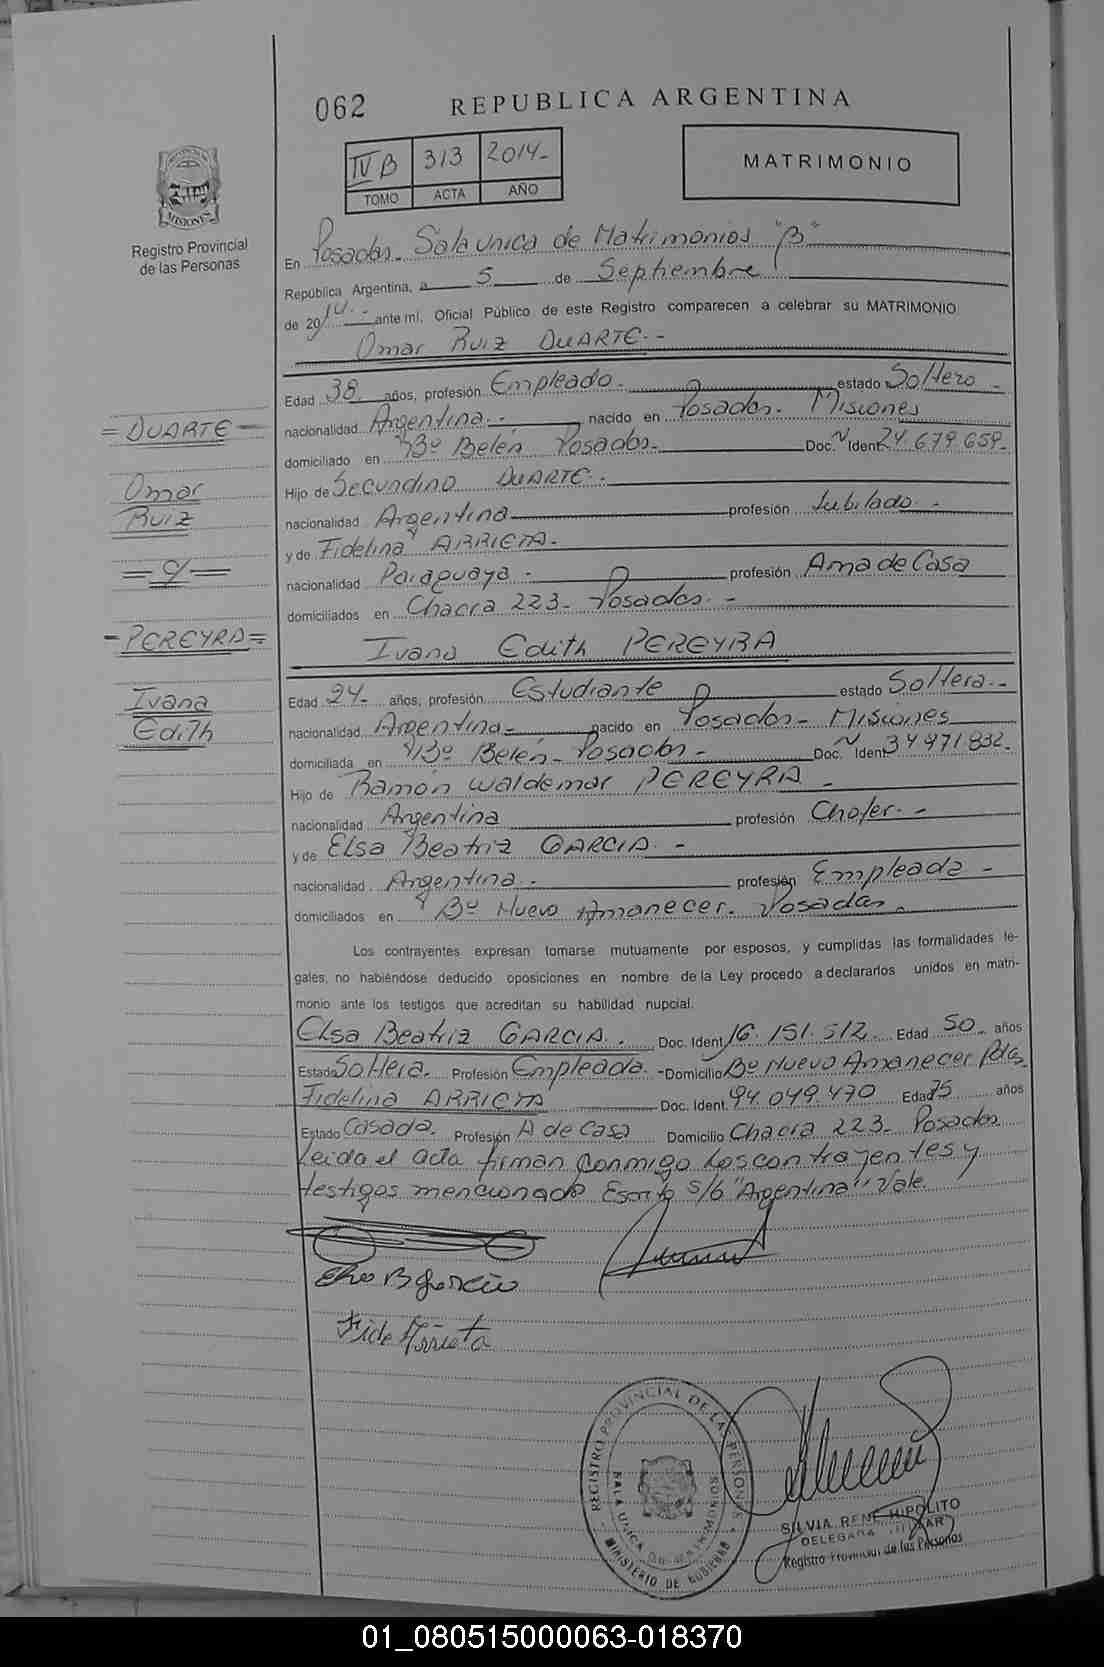 062 REPUBLICA ARGENTINA
IV B 313 2014-
TOMO ACTA AÑO
MATRIMONIO
MISIONES
Registro Provincial
de las Personas
En Posadas. Sala Unica de Matrimonios "B"
República Argentina, a 5 de Septiembre
de 2014.- ante mí, Oficial Público de este Registro comparecen a celebrar su MATRIMONIO
Omar Ruiz DUARTE.-
Edad 38 años, profesión Empleado- estado Soltero-
nacionalidad Argentina.- nacido en Posadas- Misiones
=DUARTE-
domiciliado en Bº Belén Posadas- Doc. N Ident 24.679.659-
Omar
Hijo de Secundino DUARTE.-
Ruiz
nacionalidad Argentina profesión Jubilado-
y de Fidelina ARRIETA-
=c/=
nacionalidad Paraguaya- profesión Ama de Casa
domiciliados en Chacra 223- Posadas.-
-PEREYRA=
Ivana Edith PEREYRA
Ivana
Edad 24- años, profesión Estudiante estado Soltera.-
Edith
nacionalidad Argentina- nacido en Posadas- Misiones
domiciliada en Bº Belén- Posadas- Doc. N Ident 34971832-
Hijo de Ramón Waldemar PEREYRA-
nacionalidad Argentina profesión Chofer.-
y de Elsa Beatriz GARCIA.-
nacionalidad Argentina.- profesión Empleada-
domiciliados en Bº Nuevo Amanecer. Posadas.
Los contrayentes expresan tomarse mutuamente por esposos, y cumplidas las formalidades le-
gales, no habiéndose deducido oposiciones en nombre de la Ley procedo a declararlos unidos en matri-
monio ante los testigos que acreditan su habilidad nupcial.
Elsa Beatriz GARCIA. Doc. Ident 16.151.512- Edad 50 años
Estado Soltera. Profesión Empleada. -Domicilio Bº Nuevo Amanecer Pdas.
Fidelina ARRIETA Doc. Ident. 94.049.470 Edad 75 años
Estado Casada. Profesión A de Casa Domicilio Chacra 223- Posadas
Leida el acta firman conmigo los contrayentes y
testigos mencionado Escrito s/b "Argentina" Vale.
Elsa B Garcia
Fide Arrieta
REGISTRO PROVINCIAL DE LAS PERSONAS
SALA UNICA DE MATRIMONIOS
MINISTERIO DE GOBIERNO
SILVIA RENE HIPOLITO
DELEGADA TITULAR
Registro Provincial de las Personas
01_080515000063-018370